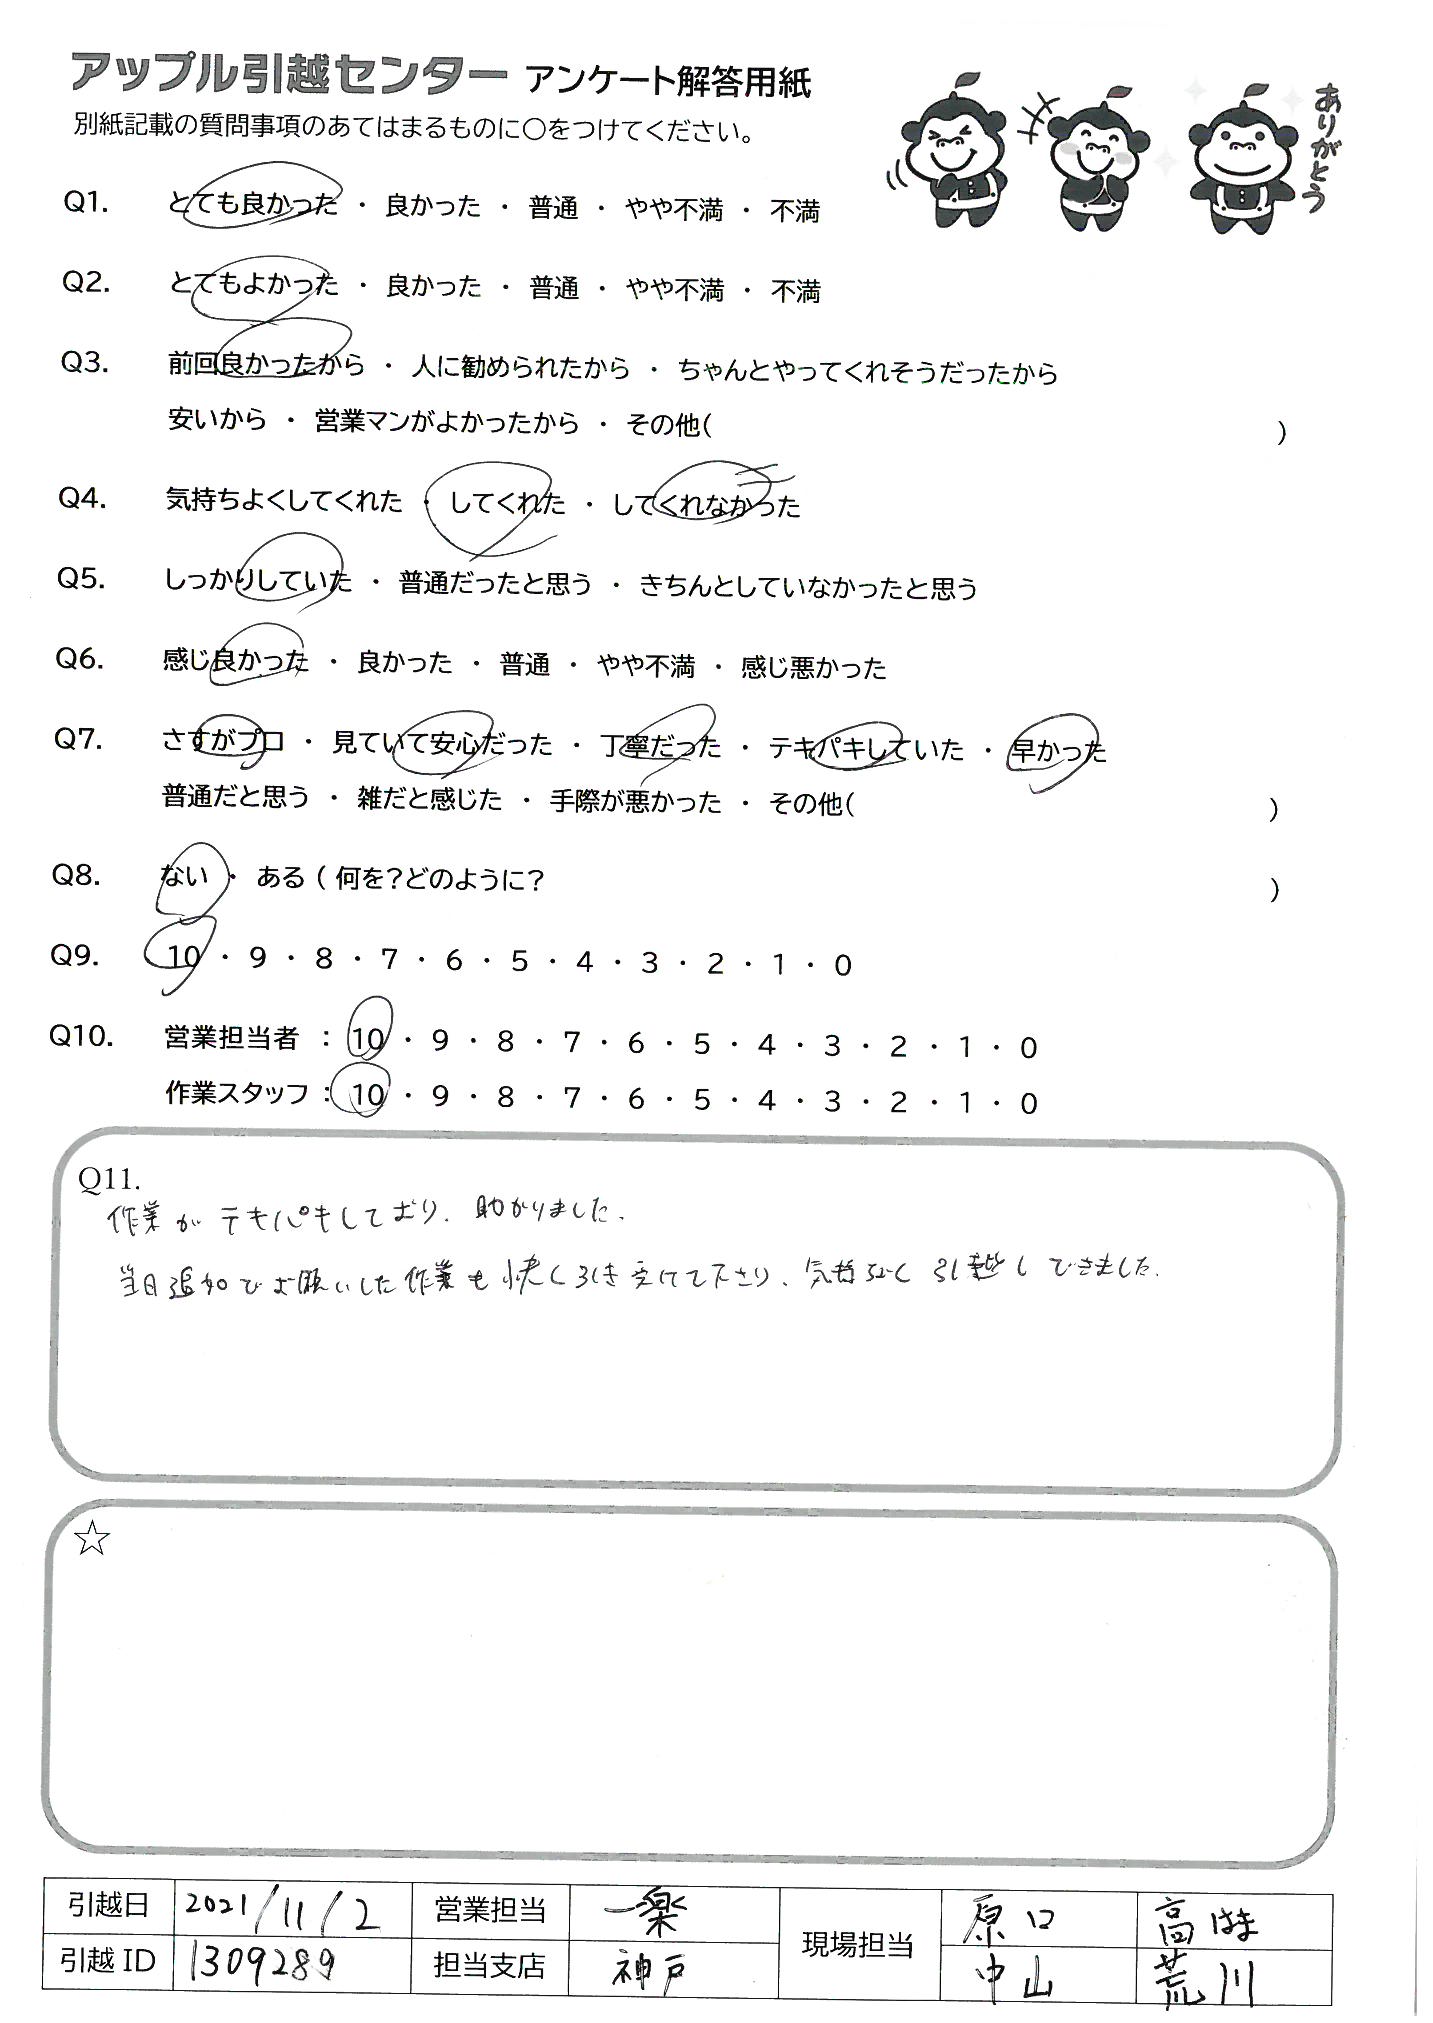 アップル引越センター アンケート解答用紙
別紙記載の質問事項のあてはまるものに〇をつけてください。
ありがとう
Q1. とても良かった ・ 良かった ・ 普通 ・ やや不満 ・ 不満
Q2. とてもよかった ・ 良かった ・ 普通 ・ やや不満 ・ 不満
Q3. 前回良かったから ・ 人に勧められたから ・ ちゃんとやってくれそうだったから
安いから ・ 営業マンがよかったから ・ その他( )
Q4. 気持ちよくしてくれた ・ してくれた ・ してくれなかった
Q5. しっかりしていた ・ 普通だったと思う ・ きちんとしていなかったと思う
Q6. 感じ良かった ・ 良かった ・ 普通 ・ やや不満 ・ 感じ悪かった
Q7. さすがプロ ・ 見ていて安心だった ・ 丁寧だった ・ テキパキしていた ・ 早かった
普通だと思う ・ 雑だと感じた ・ 手際が悪かった ・ その他( )
Q8. ない ・ ある ( 何を?どのように? )
Q9. 10 ・ 9 ・ 8 ・ 7 ・ 6 ・ 5 ・ 4 ・ 3 ・ 2 ・ 1 ・ 0
Q10. 営業担当者 : 10 ・ 9 ・ 8 ・ 7 ・ 6 ・ 5 ・ 4 ・ 3 ・ 2 ・ 1 ・ 0
作業スタッフ : 10 ・ 9 ・ 8 ・ 7 ・ 6 ・ 5 ・ 4 ・ 3 ・ 2 ・ 1 ・ 0
Q11.
作業がテキパキしており、助かりました。
当日追加でお願いした作業も快く引き受けて下さり、気持ちよく引越しできました。
☆
引越日 2021/11/2 営業担当 一楽 現場担当 原口 高はま
引越ID 1309289 担当支店 神戸 中山 荒川